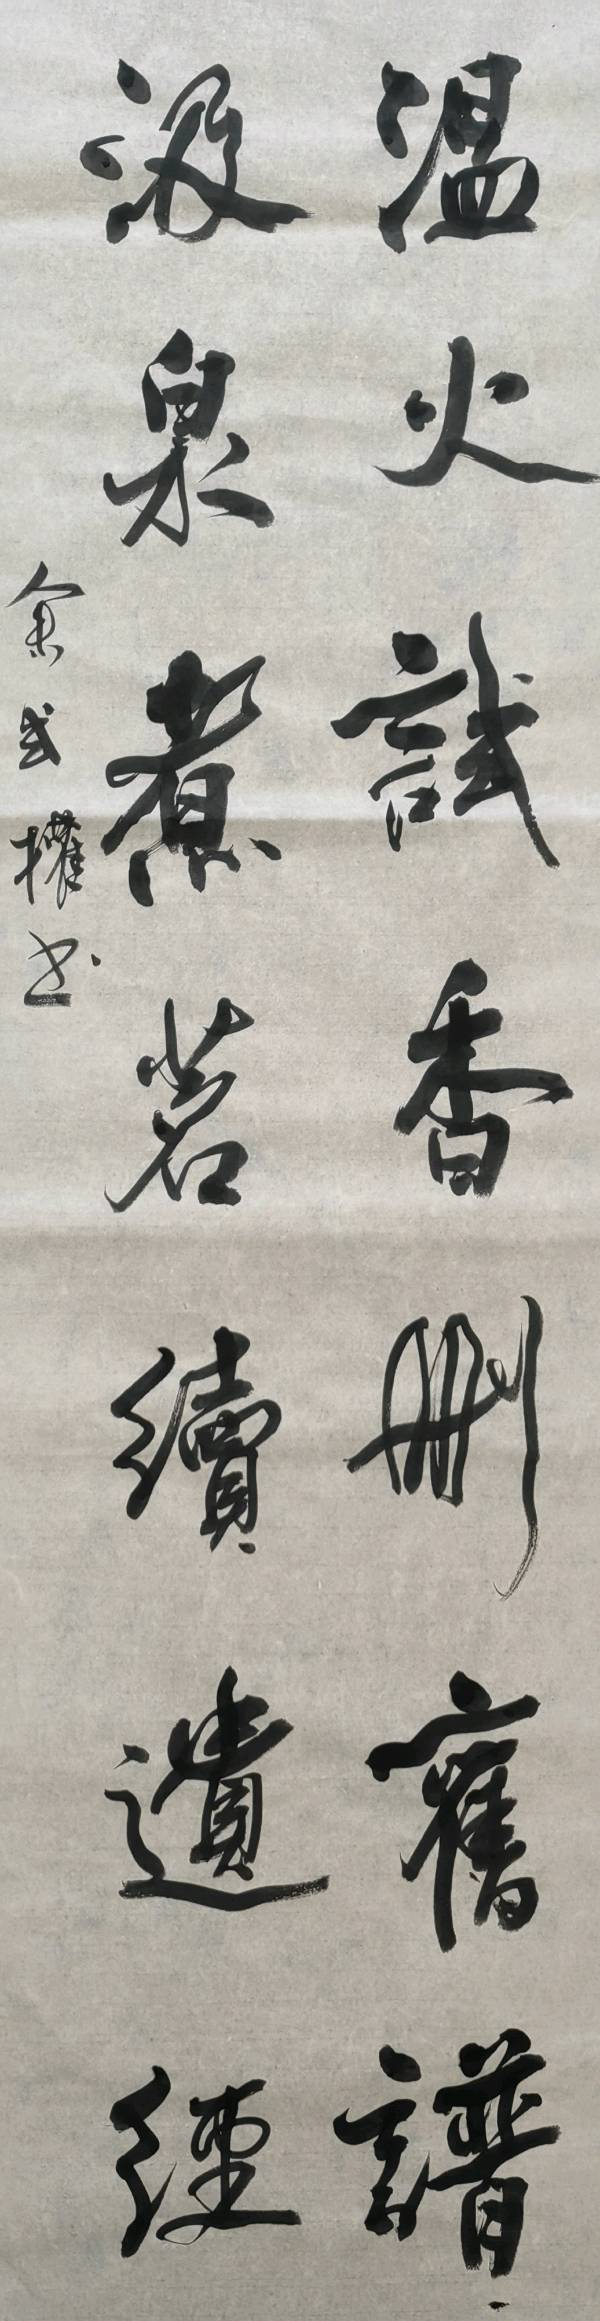 温火試香刪舊譜
汲泉煮茗續遺經
余武權书